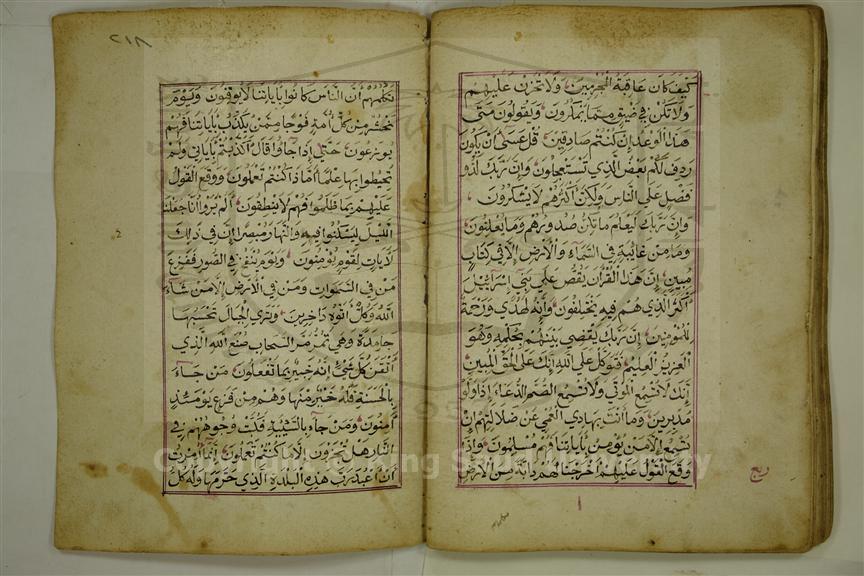 كيف كان عاقبة المجرمين ولا تحزن عليهم
ولا تكن في ضيق مما يمكرون ويقولون متى
هذا الوعد إن كنتم صادقين قل عسى أن يكون
ردف لكم بعض الذي تستعجلون وإن ربك لذو
فضل على الناس ولكن أكثرهم لا يشكرون
وإن ربك ليعلم ما تكن صدورهم وما يعلنون
وما من غائبة في السماء والأرض إلا في كتاب
مبين إن هذا القرآن يقص على بني إسرائيل
أكثر الذي هم فيه يختلفون وإنه لهدى ورحمة
للمؤمنين إن ربك يقضي بينهم بحكمه وهو
العزيز العليم فتوكل على الله إنك على الحق المبين
إنك لا تسمع الموتى ولا تسمع الصم الدعاء إذا ولو
مدبرين وما أنت بهادي العمي عن ضلالتهم إن
تسمع إلا من يؤمن بآياتنا فهم مسلمون وإذا
وقع القول عليهم أخرجنا لهم دابة من الأرض
ربع
٢١٨
تكلمهم أن الناس كانوا بآياتنا لا يوقنون ويوم
نحشر من كل أمة فوجا ممن يكذب بآياتنا فهم
يوزعون حتى إذا جاؤا قال أكذبتم بآياتي ولم
تحيطوا بها علما أماذا كنتم تعملون ووقع القول
عليهم بما ظلموا فهم لا ينطقون ألم يروا أنا جعلنا
الليل ليسكنوا فيه والنهار مبصرا إن في ذلك
لآيات لقوم يؤمنون ويوم ينفخ في الصور ففزع
من في السموات ومن في الأرض إلا من شاء
الله وكل أتوه داخرين وترى الجبال تحسبها
جامدة وهي تمر مر السحاب صنع الله الذي
أتقن كل شيء إنه خبير بما تفعلون من جاء
بالحسنة فله خير منها وهم من فزع يومئذ
آمنون ومن جاء بالسيئة فكبت وجوههم في
النار هل تجزون إلا ما كنتم تعملون إنما أمرت
أن أعبد رب هذه البلدة الذي حرمها وله كل
2